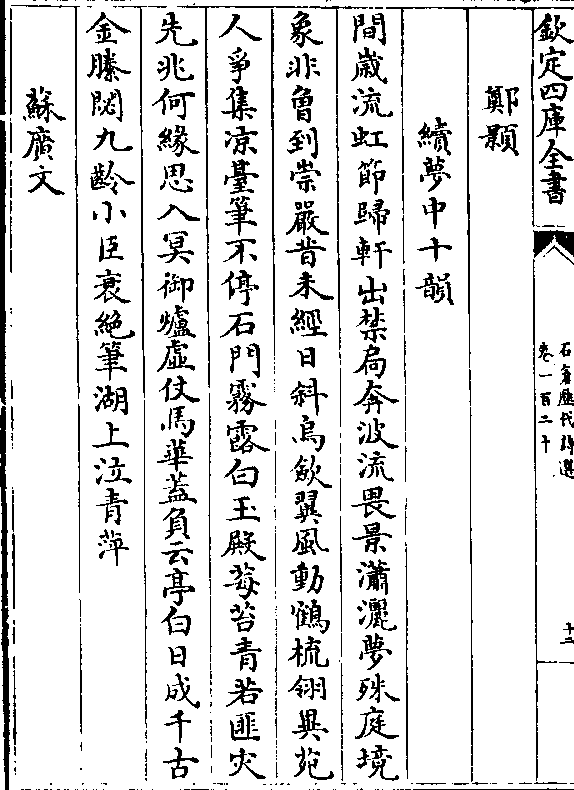 欽定四庫全書
石倉歷代詩選
卷一百二十
十二
鄭顥
續夢中十韻
間歲流虹節歸軒出禁扃奔波流畏景瀟灑夢殊庭境
象非曾到崇嚴昔未經日斜烏歛翼風動鶴梳翎異苑
人爭集凉臺筆不停石門霧露白玉殿莓苔青若匪災
先兆何緣思入冥御爐虛仗馬華葢負云亭白日成千古
金縢閟九齡小臣哀絕筆湖上泣青萍
蘇廣文